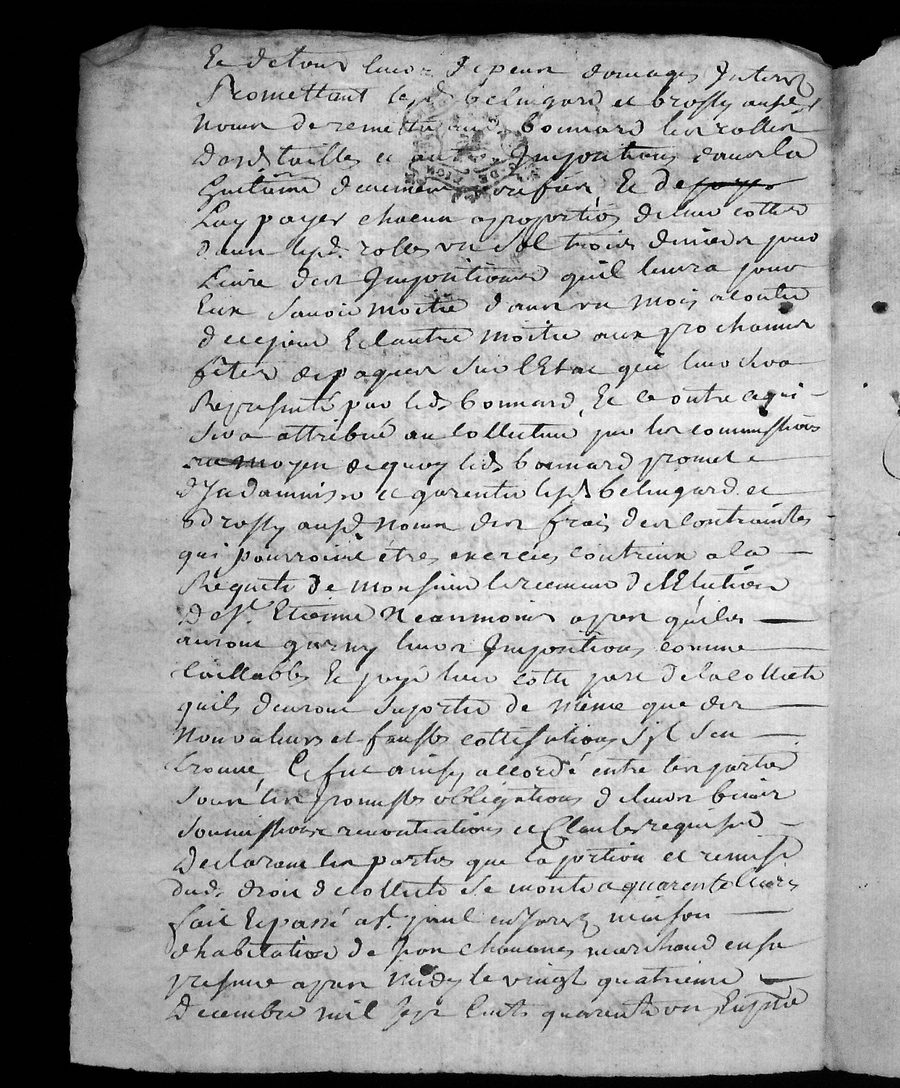 Et de tous leurs depens domages Interest
Promettant lesd belingard et brossy ausd
noms de remettre aud bonnard les rolles
Desd tailles et autres Impositions dans la
huitaine deuement veriffiés Et de
Luy payer chacun a proportion de leur cotte
dans lesd. rolles un sol trois deniers pour
Livre des Impositions quil levera pour
Eux Savoir moitié dans un mois a conter
de cejour Et lautre moitié aux prochaines
fêtes de paques Sur l'Etat qui leur Sera
Representé par led bonnard, Et ce outre ce qui
Sera attribué au Collecteur par les commissions
moyen de quoy led bonnard promet
d'Jndamniser et garentir lesd belingard et
Brossy ausd noms des frais des contraintes
qui pourroint être exercées contreux a la
Requete de monsieur le receveur de l'Election
De St. Etienne Neanmoins apres qu'ils
auront leurs Impositions comme
taillables Et payé leur cotte part de la collecte
quils devront Suporter de même que des
Nonvaleurs et fausses cottisations Sil Sen
trouve, Ce fut ainsy accordé entre les parties
Sous les promesses obligations de leurs biens
Soumissions renontiations et Clauses requises
Declarant les parties que la portion et remise
dud. droit de collecte Se monte a quarente livres
fait Et passé a St. paul en Jarest maison
d'habitation de Jean marchand en sa
presence apres midy le vingt quatrieme
Decembre mil sept cents quarente un